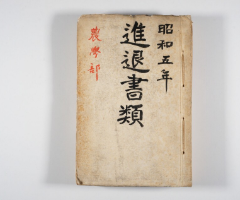 昭和五年
進退書類
農學部